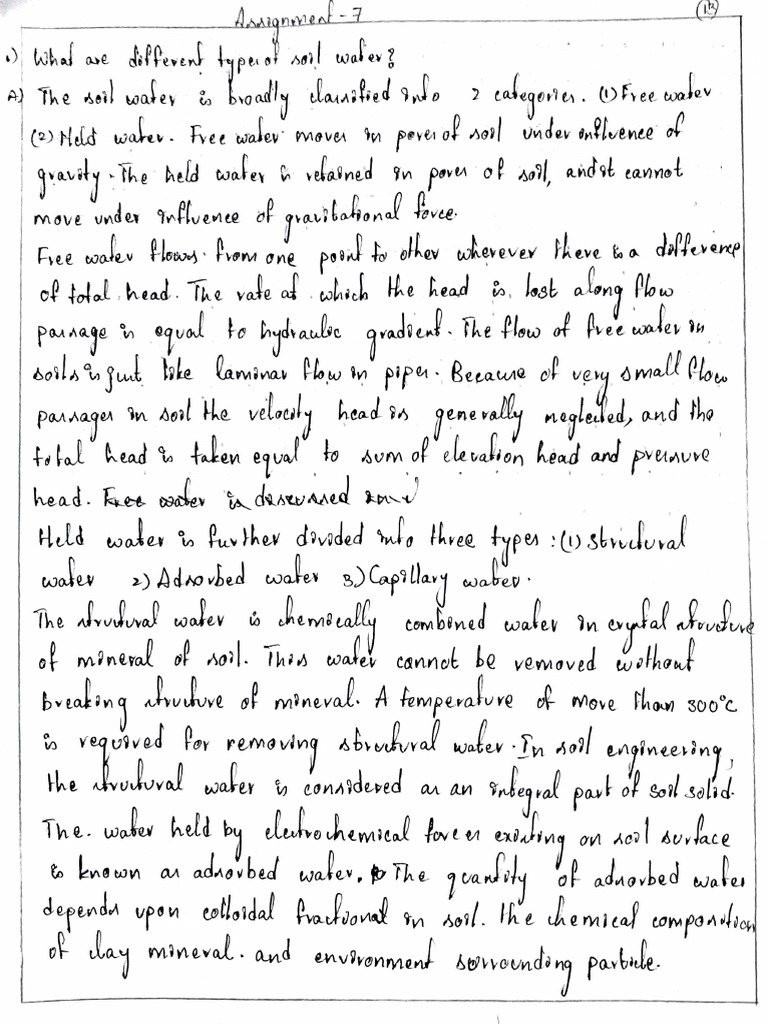 Assignment - 7
1) What are different types of soil water?
A) The soil water is broadly classified into 2 categories. (1) Free water
(2) Held water. Free water moves in pores of soil under influence of
gravity. The held water is retained in pores of soil, and it cannot
move under influence of gravitational force.
Free water flows from one point to other wherever there is a difference
of total head. The rate at which the head is lost along flow
passage is equal to hydraulic gradient. The flow of free water in
soils is just like laminar flow in pipes. Because of very small flow
passages in soil the velocity head is generally neglected, and the
total head is taken equal to sum of elevation head and pressure
head. Free water is discussed
Held water is further divided into three types : (1) structural
water 2) Adsorbed water 3) Capillary water.
The structural water is chemically combined water in crystal structure
of mineral of soil. This water cannot be removed without
breaking structure of mineral. A temperature of more than 300°C
is required for removing structural water. In soil engineering,
the structural water is considered as an integral part of soil solid.
The water held by electrochemical forces existing on soil surface
is known as adsorbed water. The quantity of adsorbed water
depends upon colloidal fractional in soil. the chemical composition
of clay mineral. and environment surrounding particle.